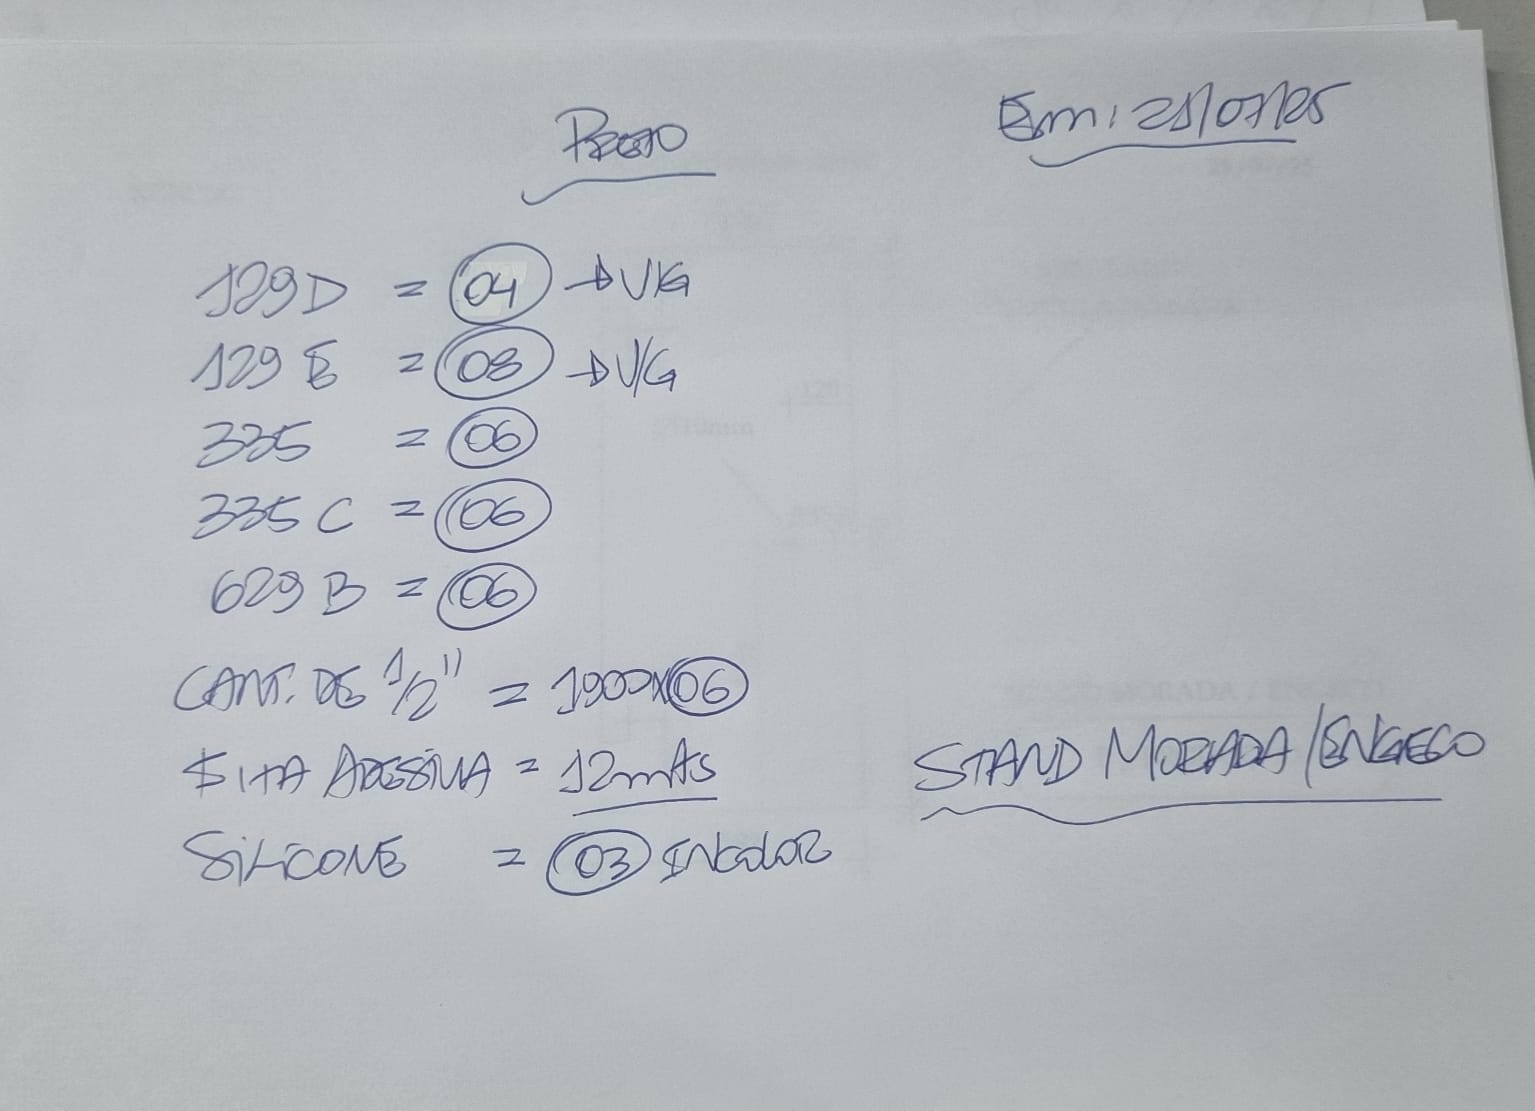 PRETO
Em: 21/07/25
129D = 04 → V/G
129 E = 08 → V/G
335 = 06
335 C = 06
629 B = 06
CANT. DE 1/2" = 1900x06
FITA ADESIVA = 12mts
STAND MORADA/ENGECO
SILICONE = 03 INCOLOR